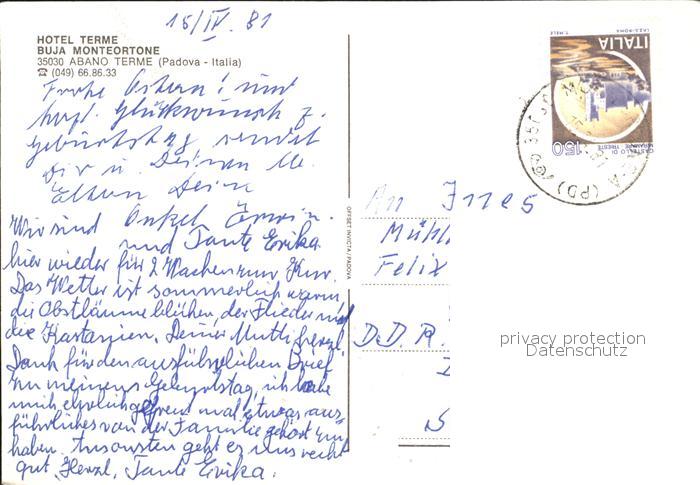 15/IV. 81
HOTEL TERME
BUJA MONTEORTONE
35030 ABANO TERME (Padova - Italia)
☎ (049) 66.86.33
Frohe Ostern! und
herzl. Glückwunsch z.
Geburtstag sendet
Dir u. Deinen lb.
Eltern Dein
Onkel Erwin.
und Tante Erika
Wir sind
hier wieder für 2 Wochen zur Kur.
Das Wetter ist sommerlich warm,
die Obstbäume blühen, der Flieder und
die Kastanien. Deiner Mutti herzl.
Dank für den ausführlichen Brief
zu meinem Geburtstag, ich habe
mich ehrlich gefreut mal etwas aus=
führliches von der Familie gehört zu
haben. Ansonsten geht es uns recht
gut. Herzl. Tante Erika.
OFFSET INVICTA/PADOVA
An Ines
Mühl
Felix
D.D.R.
S
ITALIA
150
CASTELLO DI
MIRAMARE TRIESTE
T. MELE
I.P.Z.S.-ROMA
(PD)
privacy protection
Datenschutz